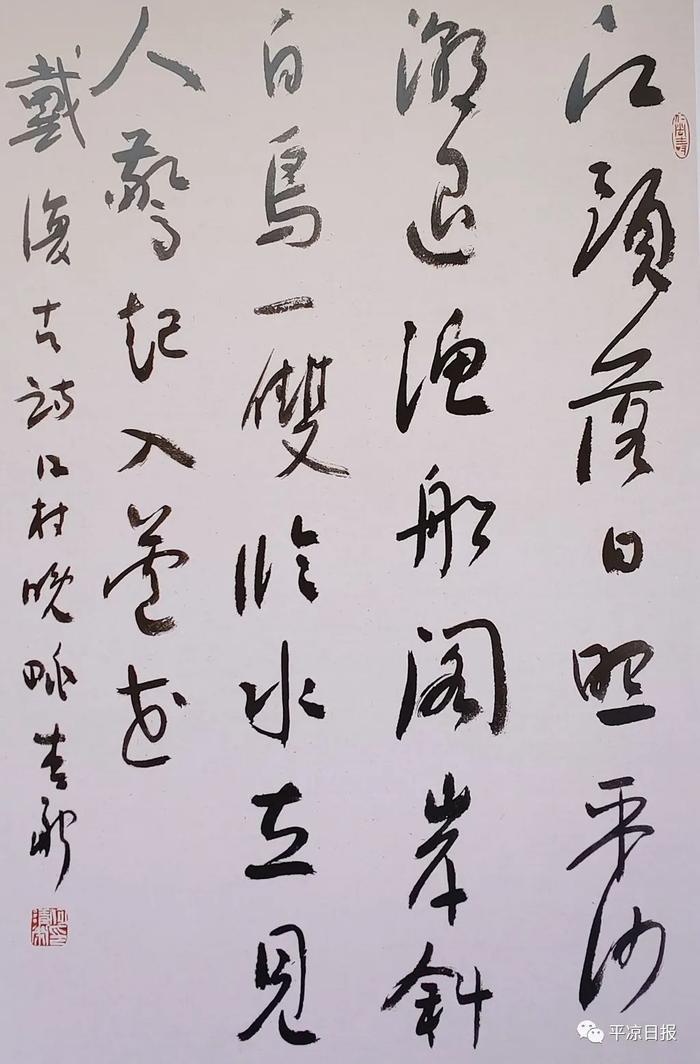 江頭落日照平沙
潮退漁船閣岸斜
白鳥一雙臨水立見
人驚起入蘆花
戴復古詩江村晚眺
平凉日报